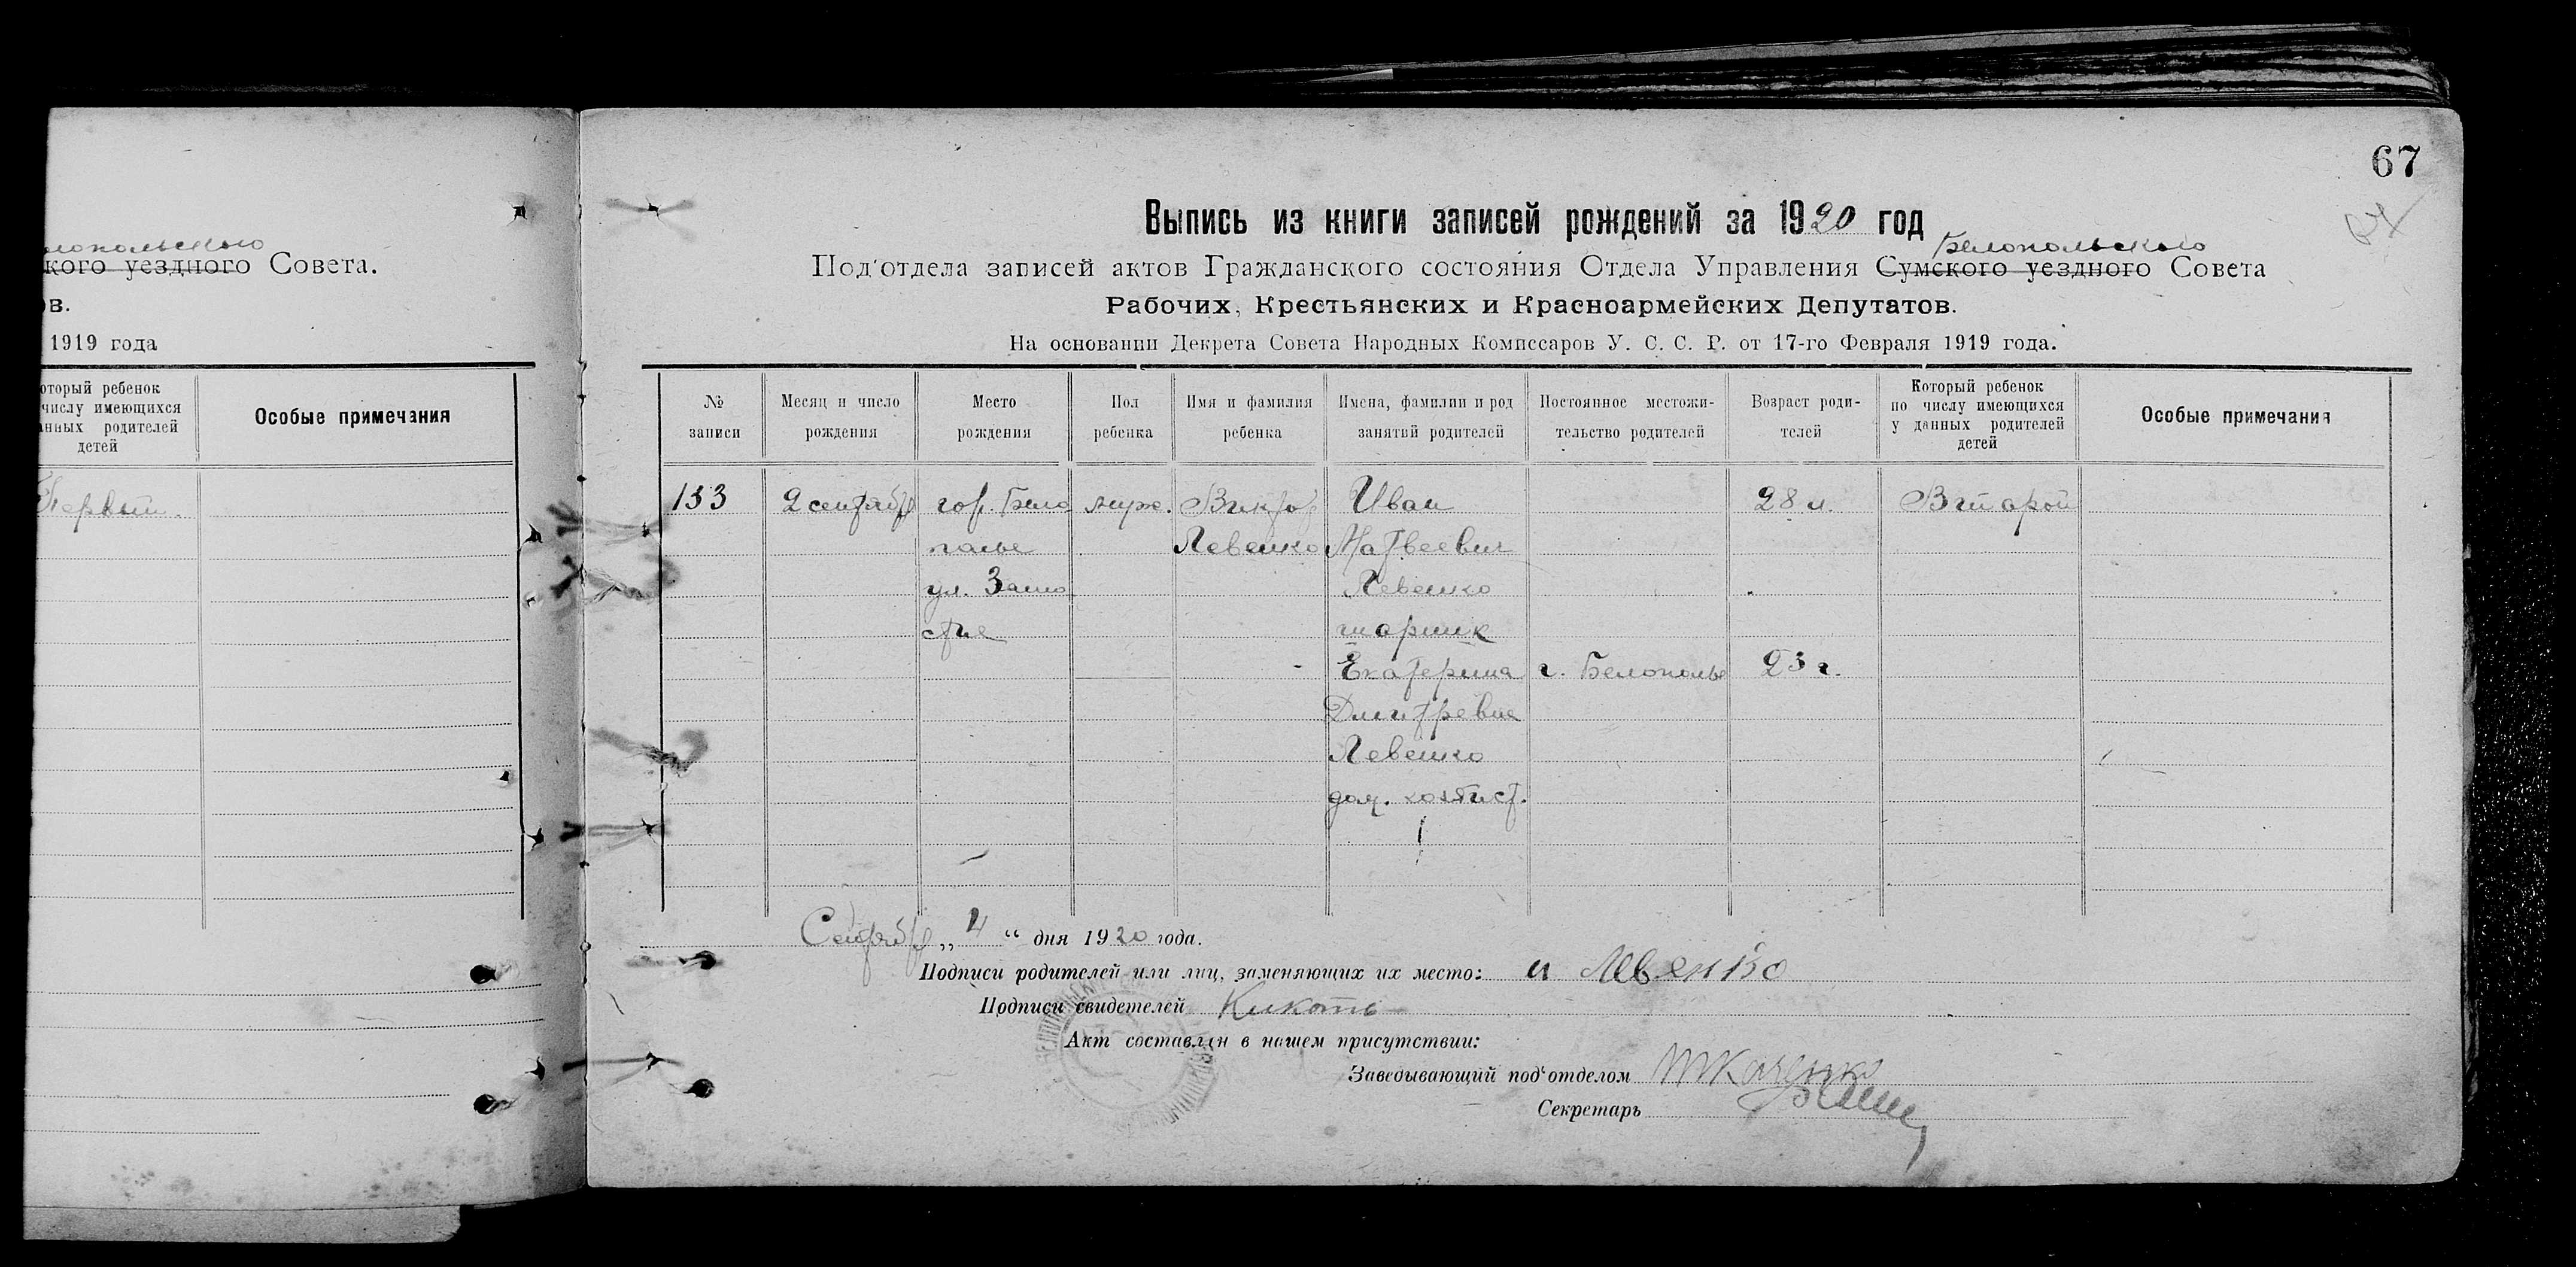 лопольского
кого уездного Совета.
ов.
1919 года
оторый ребенок
числу имеющихся
анных родителей
детей
Особые примечания
Первый.
67
Выпись из книги записей рождений за 1920 год
Белопольского
Под'отдела записей актов Гражданского состояния Отдела Управления Сумского уездного Совета
Рабочих, Крестьянских и Красноармейских Депутатов.
На основании Декрета Совета Народных Комиссаров У. С. С. Р. от 17-го Февраля 1919 года.
№ записи
Месяц и число рождения
Место рождения
Пол ребенка
Имя и фамилия ребенка
Имена, фамилии и род занятий родителей
Постоянное местожительство родителей
Возраст родителей
Который ребенок по числу имеющихся у данных родителей детей
Особые примечания
133 2 сентября гор. Бело муж. Виктор Иван 28 л. Второй
полье Левенко Матвеевич
ул. Замо Левенко
стье
Екатерина г. Белополье 23 г.
Дмитревна
Левенко
дом. хозяйст.
Сентября „ 4 “ дня 1920 года.
Подписи родителей или лиц, заменяющих их место: и Левенко
Подписи свидетелей Кикоть
Акт составлен в нашем присутствии:
Заведывающий под'отделом Ткаченко
Секретарь